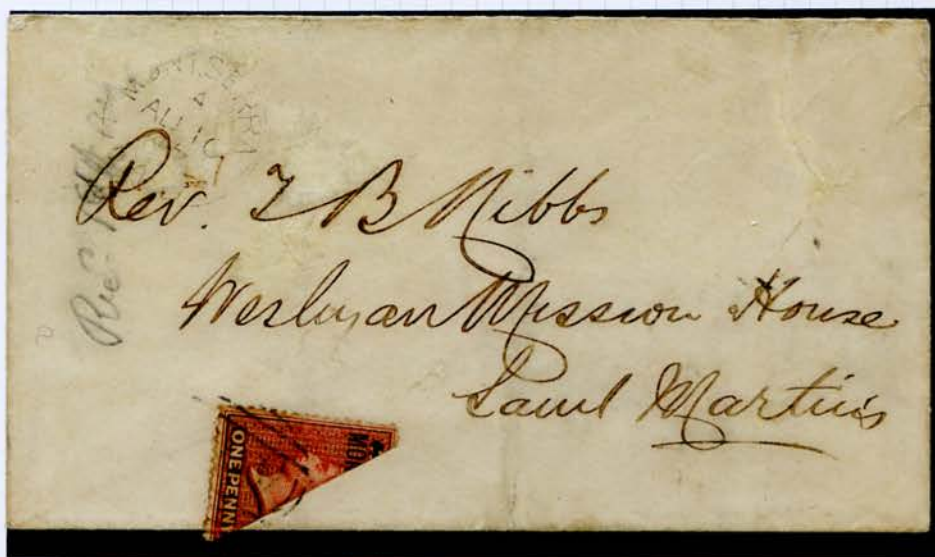 MONTSERRAT
A
AU 10
Rev. T B Nibbs
Wesleyan Mission House
Saint Martins
MON
ONE PENNY